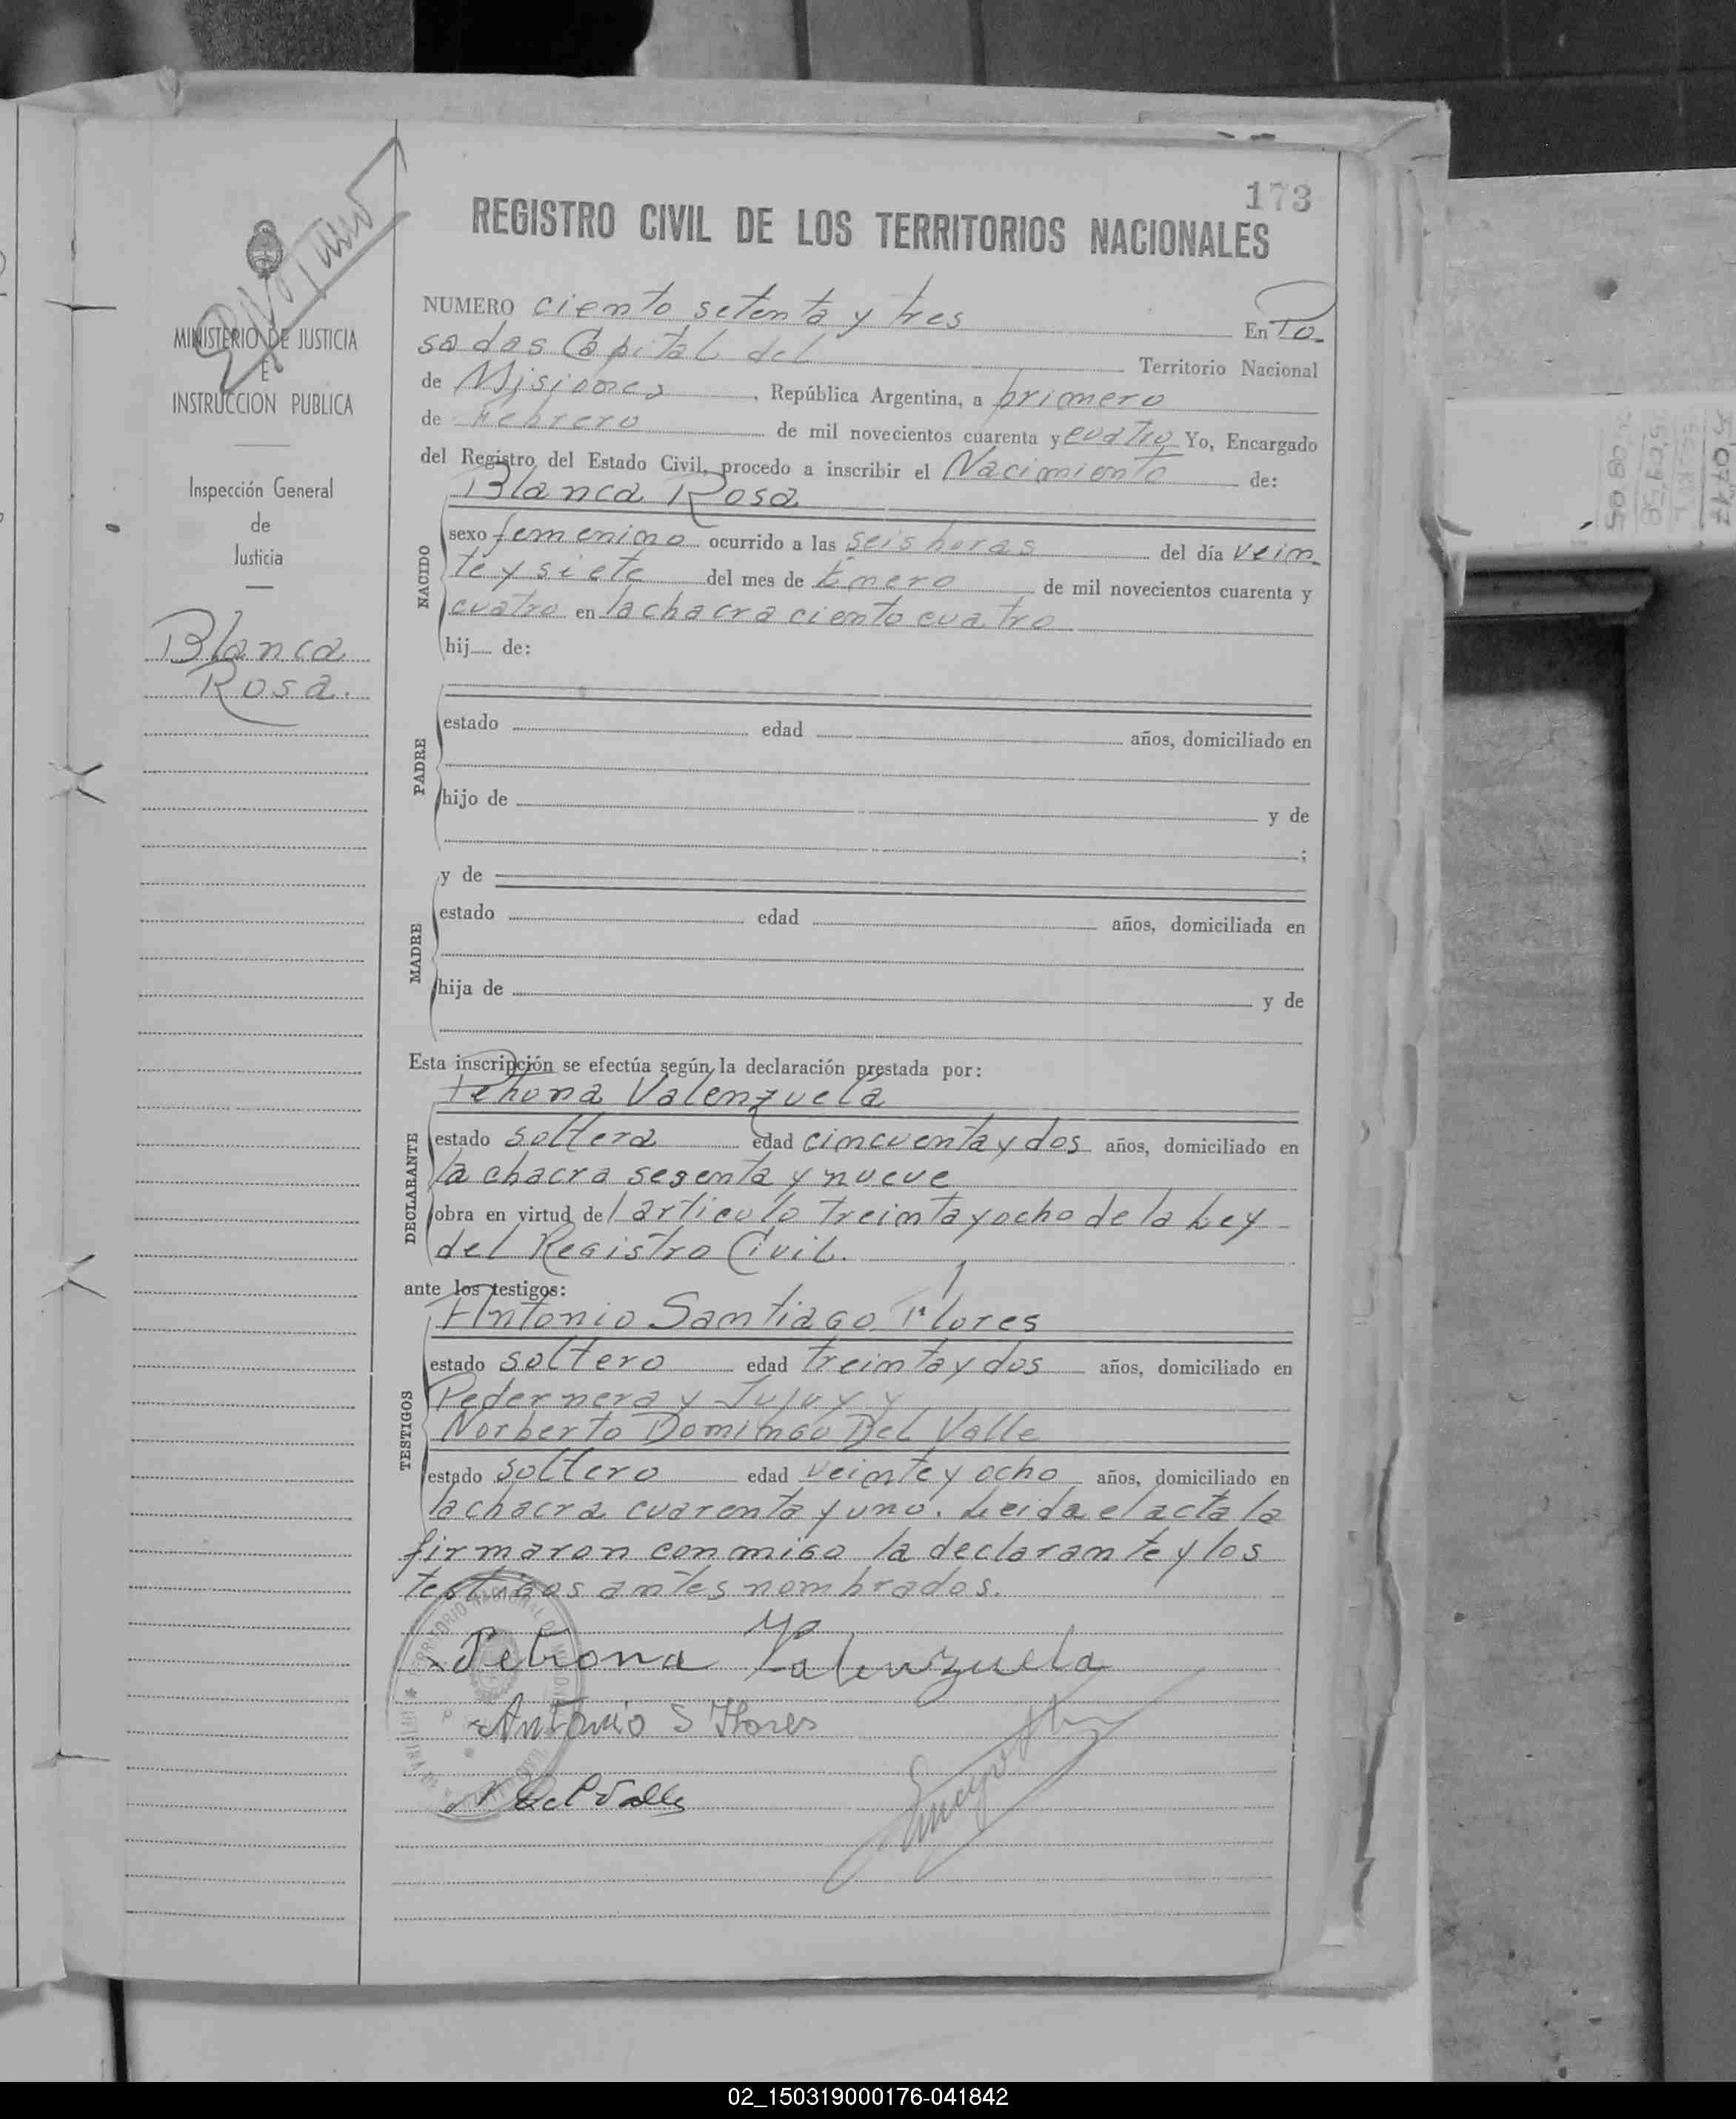 173
REGISTRO CIVIL DE LOS TERRITORIOS NACIONALES
MINISTERIO DE JUSTICIA
E
INSTRUCCION PUBLICA
Inspección General
de
Justicia
Blanca
Rosa.
NUMERO ciento setenta y tres En Po-
sadas Capital del Territorio Nacional
de Misiones, República Argentina, a primero
de Febrero de mil novecientos cuarenta y cuatro Yo, Encargado
del Registro del Estado Civil, procedo a inscribir el Nacimiento de:
Blanca Rosa
NACIDO
sexo femenino ocurrido a las seis horas del día vein-
te y siete del mes de Enero de mil novecientos cuarenta y
cuatro en la chacra ciento cuatro
hij de:
PADRE
estado edad años, domiciliado en
hijo de y de
;
y de
MADRE
estado edad años, domiciliada en
hija de y de
Esta inscripción se efectúa según la declaración prestada por:
Petrona Valenzuela
DECLARANTE
estado soltera edad cincuenta y dos años, domiciliado en
la chacra sesenta y nueve
obra en virtud del articulo treinta y ocho de la Ley
del Registro Civil.
ante los testigos:
Antonio Santiago Flores
TESTIGOS
estado soltero edad treinta y dos años, domiciliado en
Pedernera y Jujuy y
Norberto Domingo Del Valle
estado soltero edad veinte y ocho años, domiciliado en
la chacra cuarenta y uno. Leida el acta la
firmaron conmigo la declarante y los
testigos antes nombrados.
Petrona Valenzuela
Antonio S Flores
N Del Valle
02_150319000176-041842